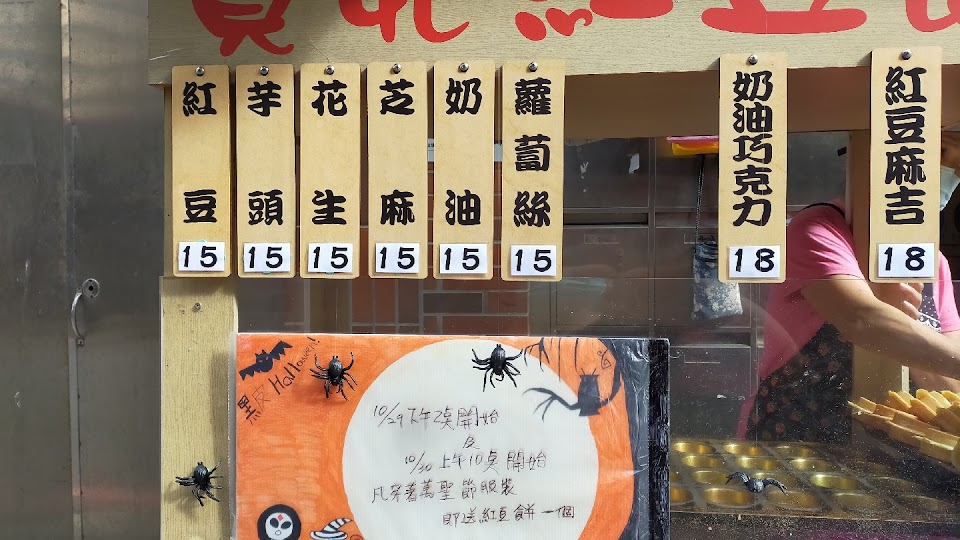 紅豆
15
芋頭
15
花生
15
芝麻
15
奶油
15
蘿蔔絲
15
奶油巧克力
18
紅豆麻吉
18
黑皮 Halloween!
10/29下午2點開始
及
10/30 上午10點開始
凡穿著萬聖節服裝
即送紅豆餅一個